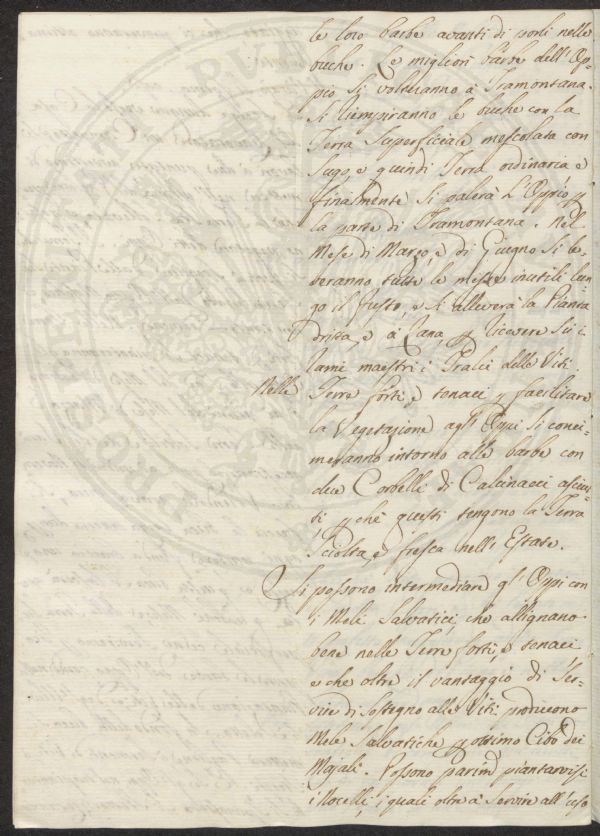 le loro barbe avanti di porli nelle
buche. Le migliori barbe dell'Op-
pio si volteranno a Tramontana.
Si riempiranno le buche con la
Terra Superficiale mescolata con
Sugo, e quindi Terra ordinaria e
finalmente Si palerà L'Oppio p
la parte di Tramontana. Nel
Mese di Marzo, e di Giugno Si le-
veranno tutte le messe inutili lun-
go il fusto, e Si alleverà la Pianta
dritta, e à Cana, p ricevere Sù i
rami maestri i Tralci delle Viti.
Nelle Terre forti, e tenaci p facilitare
la Vegetazione agl'Oppi Si conci-
meranno intorno alle barbe con
due Corbelli di Calcinacci asciut-
ti, p chè questi tengono la Terra
Sciolta, e fresca nell'Estate.
Si possono intermediare gl'Oppi con
i Meli Salvatici, che allignano
bene nelle Terre forti, e tenaci
e che oltre il vantaggio di Ser-
vire di Sostegno alle Viti producono
Mele Salvatiche p ottimo Cibo dei
Majali. Possono parim. piantarvisi
i Nocelli, i quali oltre à Servire all'uso